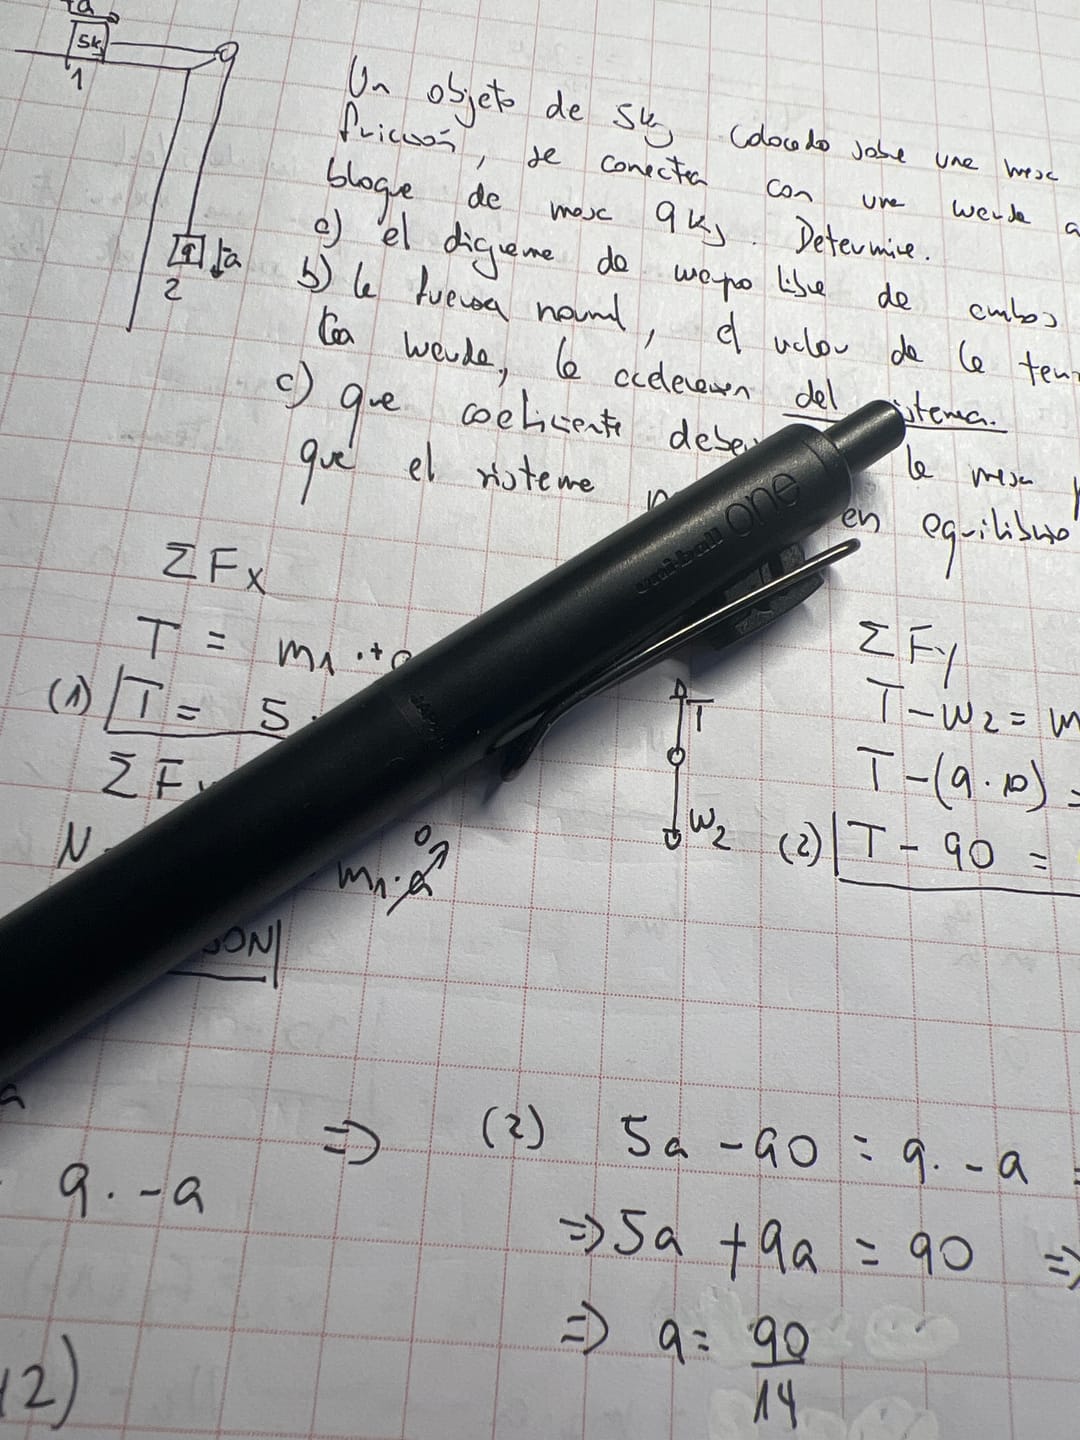 a
5k
1
a
2
Un objeto de 5kg colocado sobre una mesa
fricción, se conecta con una cuerda a
bloque de masa 9 kg. Determine.
a) el digrama de cuerpo libre de ambos
b) la fuerza normal, el valor de la ten
la cuerda, la aceleracion del sistema.
c) que coeficiente debe la mesa p
que el sistema en equilibrio
ΣFx
T = m1 · + a
(1) T = 5 ·
ΣF
N
m1 · a 0
50N
T
W2
ΣFy
T - W2 = m
T - (9 · 10) =
(2) T - 90 =
a
9 · -a
⇒ (2) 5a - 90 = 9 · -a =
⇒ 5a + 9a = 90 ⇒
⇒ a = 90/14
2)
uni-ball one